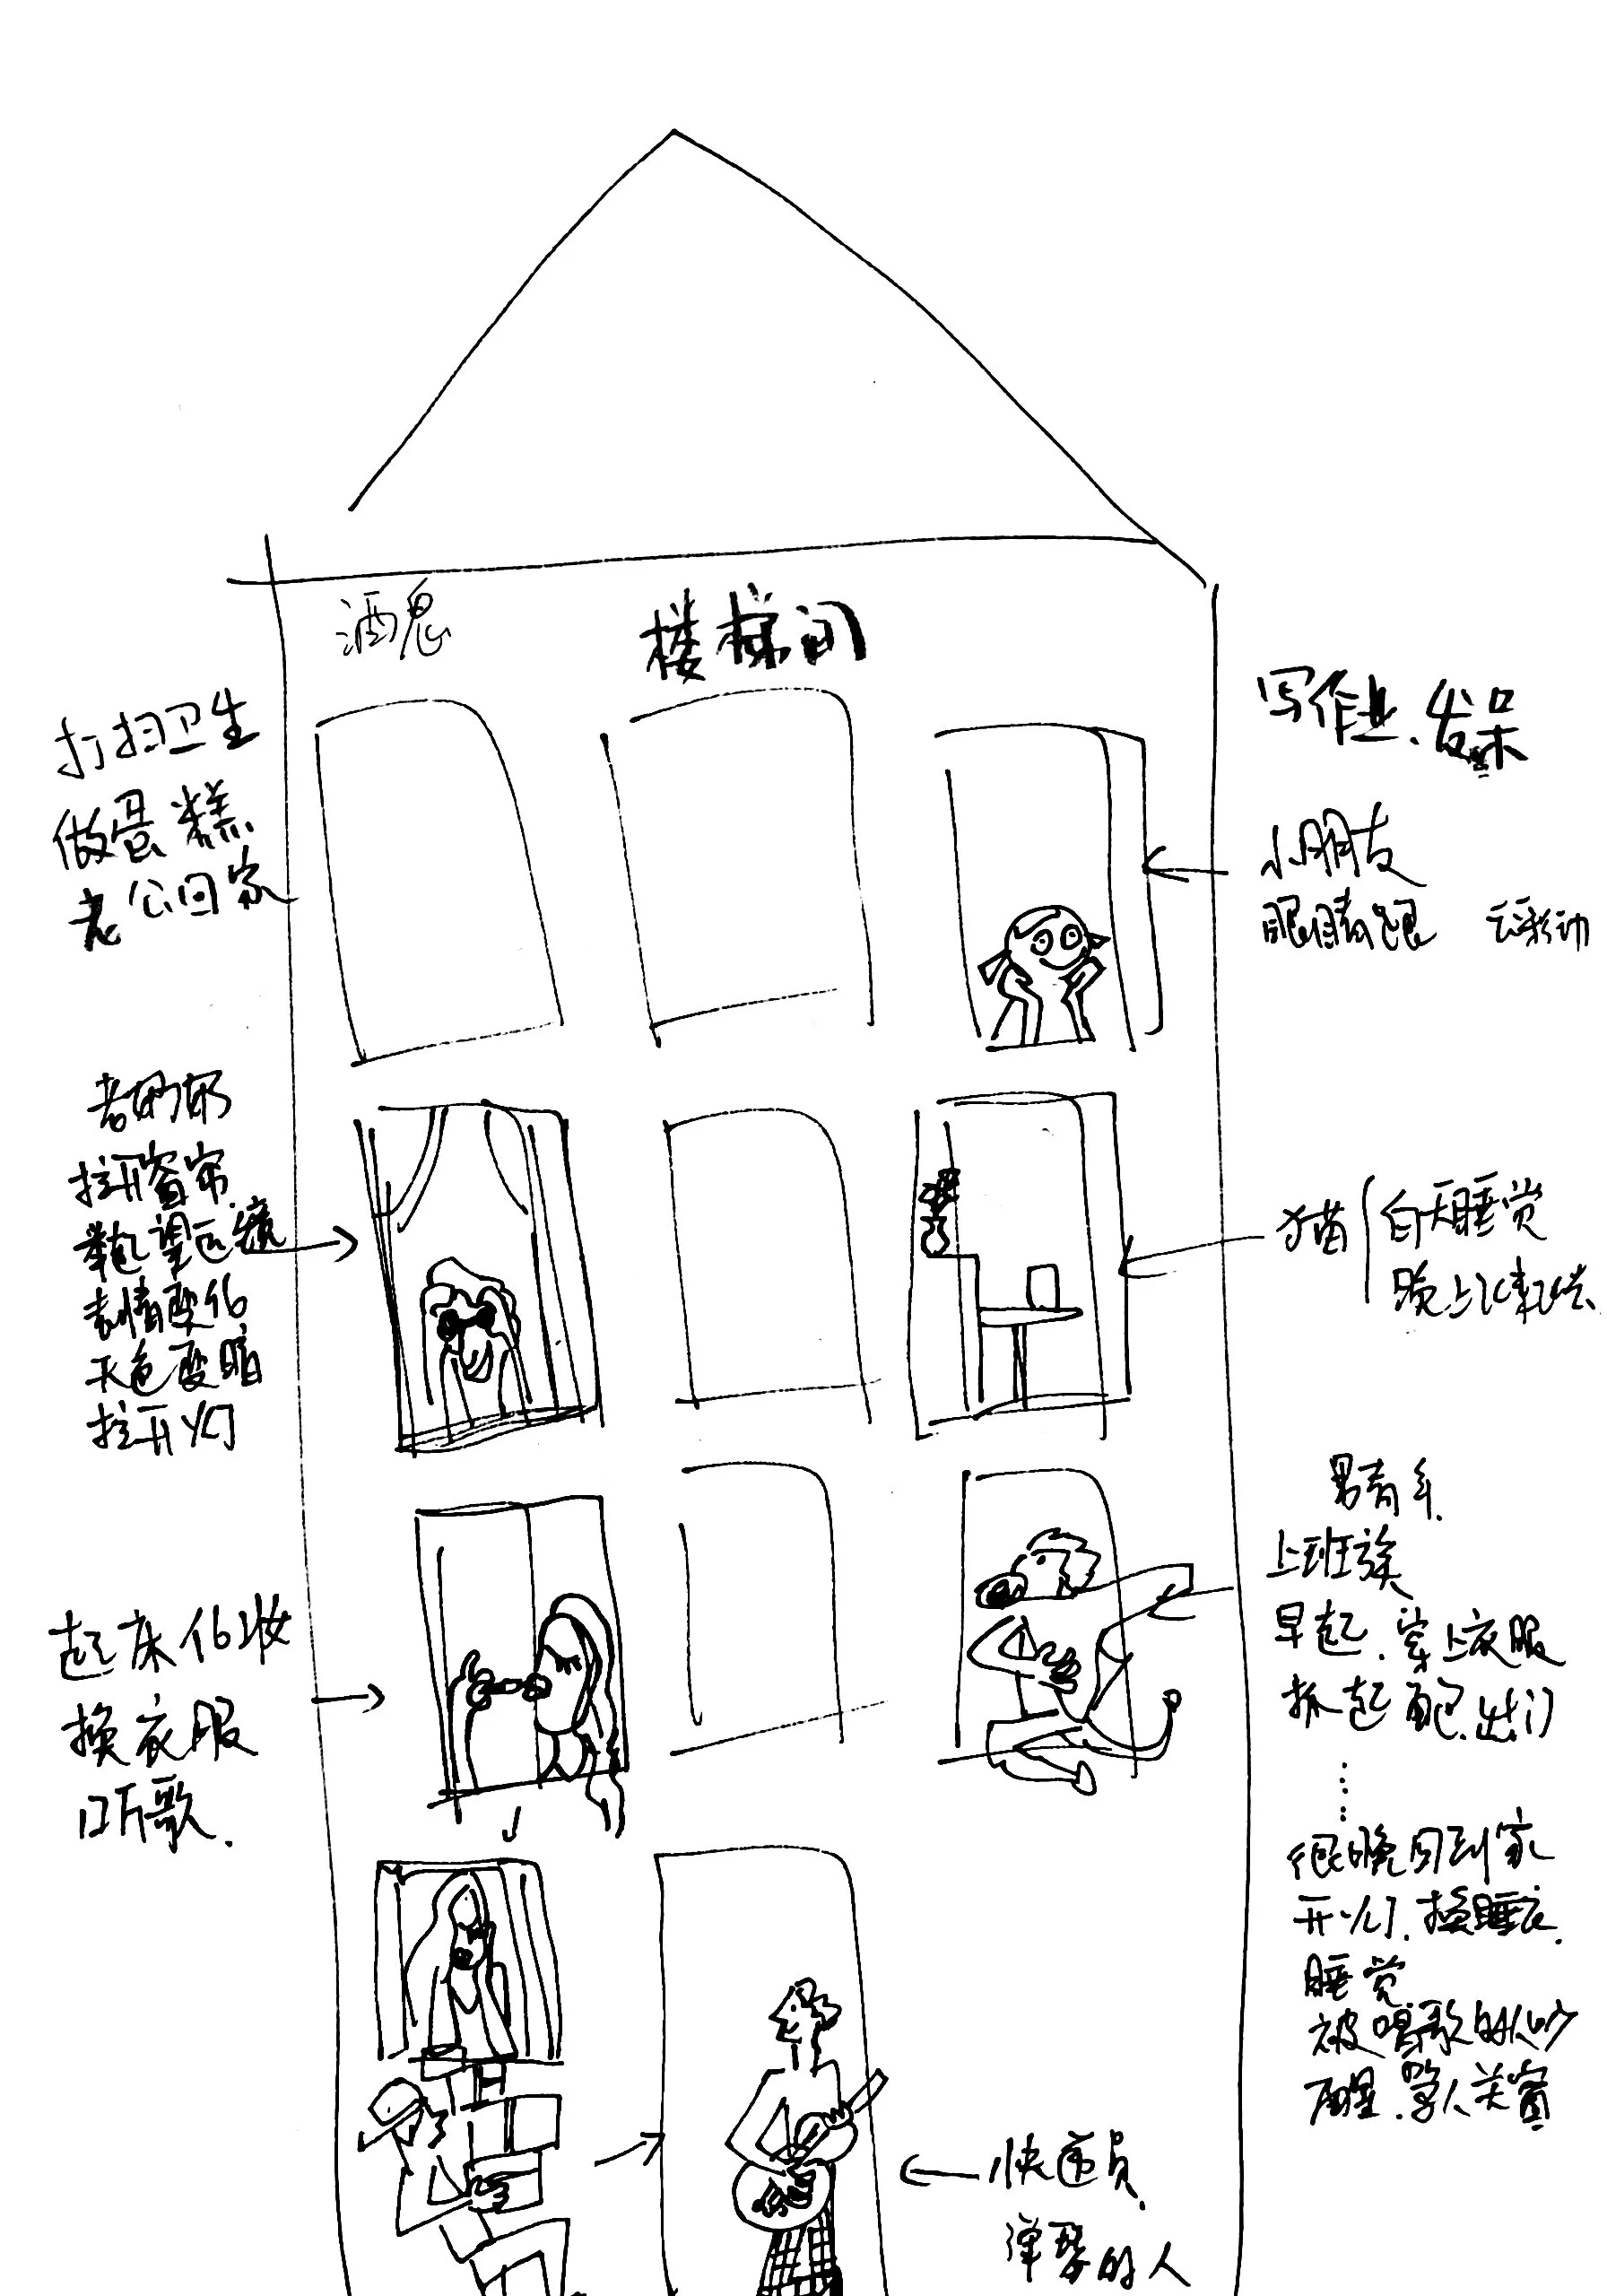 酒鬼
楼梯间
打扫卫生
做蛋糕
老公回家
写作业.发呆
小朋友
眼睛跟 云彩动
老奶奶
拉开窗帘.
举起望远镜
表情变化
天色变暗
拉开灯
猫 白天睡觉
晚上
起床化妆
换衣服
听歌.
男青年.
上班族
早起.穿上衣服
抓起面包.出门
……
很晚回到家
开灯.换睡衣.
睡觉.
被唱歌的人吵
醒.关窗
快递员.
弹琴的人